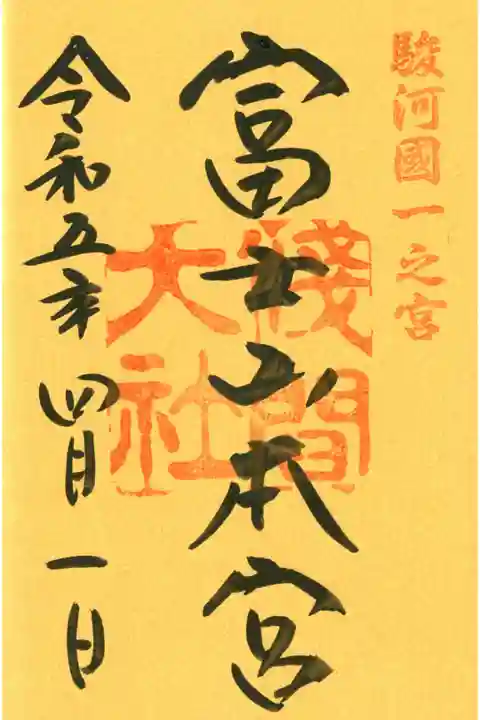 駿河國一之宮
富士山本宮
淺間
大社
令和五年 四月一日